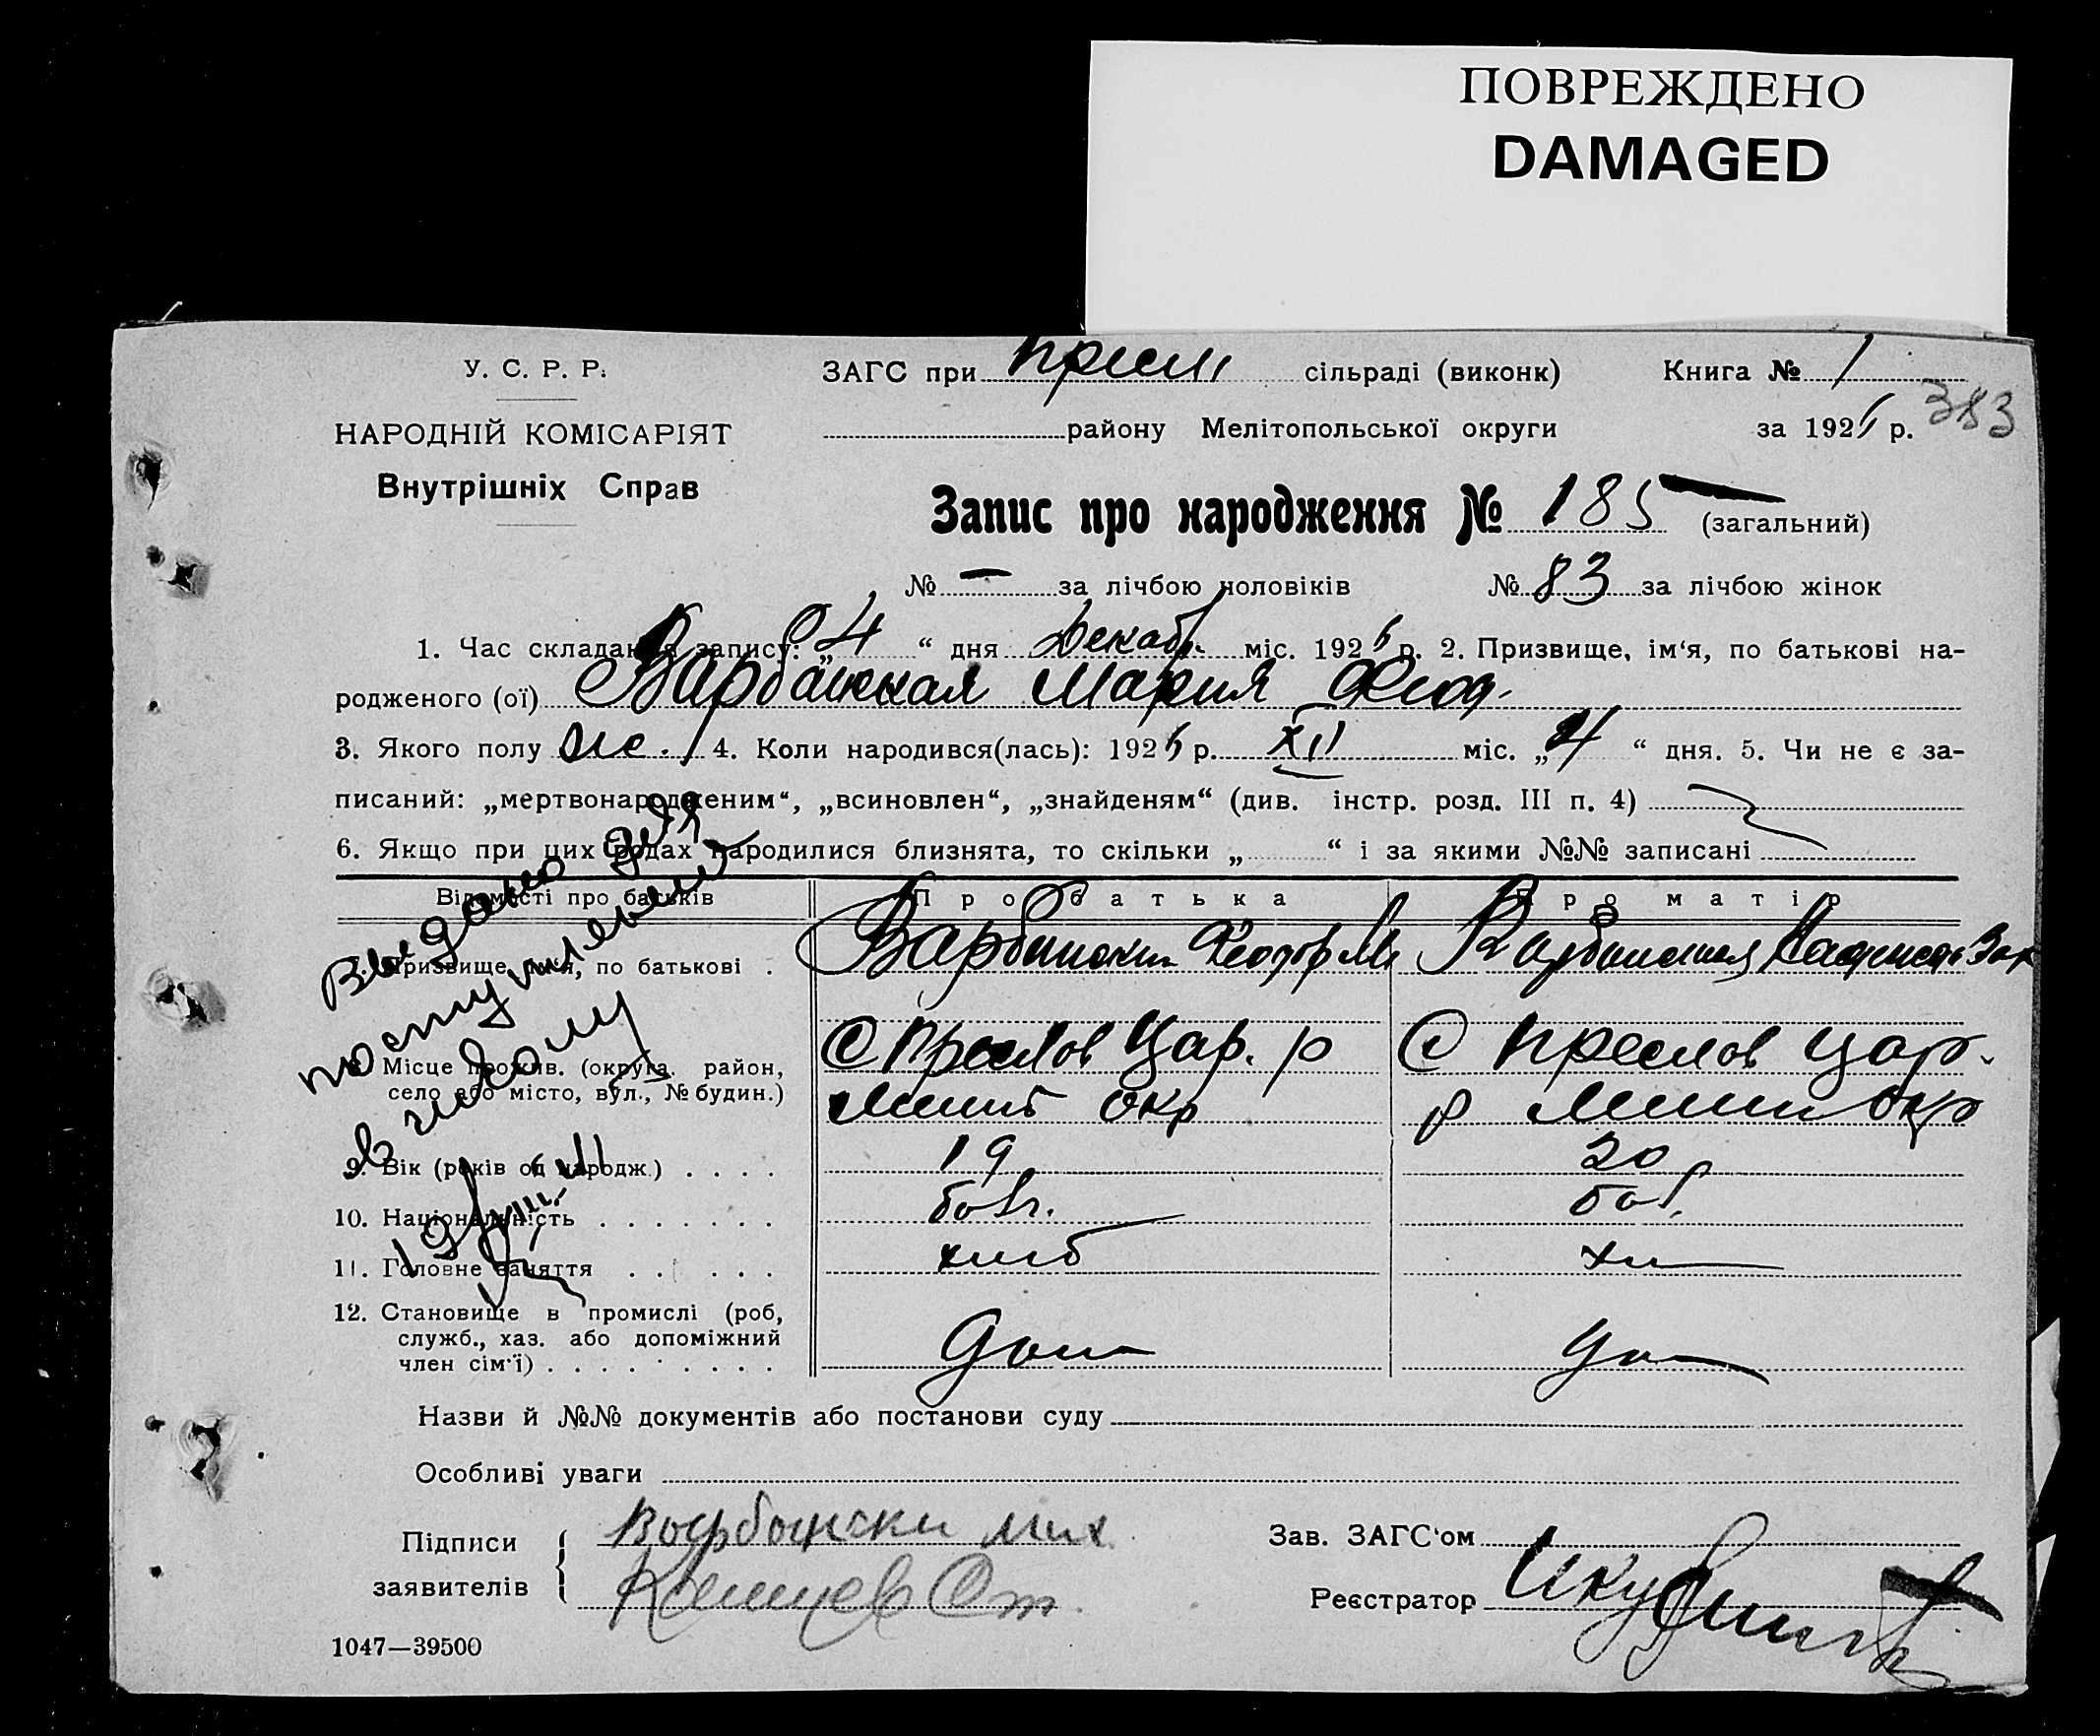 ПОВРЕЖДЕНО
DAMAGED
У. С. Р. Р.
НАРОДНІЙ КОМІСАРІЯТ
Внутрішніх Справ
ЗАГС при сільраді (виконк) Книга № 1
району Мелітопольської округи за 1926 р. 383
Запис про народження № 185 (загальний)
№ — за лічбою чоловіків № 83 за лічбою жінок
1. Час складання запису: „4“ дня Декабр. міс. 1926 р. 2. Призвище, ім‘я, по батькові на-
родженого (ої) Варбанская Мария Феод.
3. Якого полу же. 4. Коли народився(лась): 1926 р. XII міс. „4“ дня. 5. Чи не є за-
писаний: „мертвонародженим“, „всиновлен“, „знайденям“ (див. інстр. розд. III п. 4)
6. Якщо при цих родах народилися близнята, то скільки „ “ і за якими №№ записані
Відомості про батьків Про батька Про матір
7. Призвище, ім‘я, по батькові . Варбански Феодор Варбанская Зах
8. Місце прожив. (округа. район, С Преслов Цар. р С Преслов Цар.
село або місто, вул., № будин.) Мелит окр р Мелит Окр
9. Вік (років од народж.) . . . . 19 20
10. Національність . . . . . . . болг. бол.
11. Головне заняття . . . . . хлеб
12. Становище в промислі (роб,
служб., хаз. або допоміжний
член сім‘ї) . . . . . . . . .
Выдано для
поступления
в школу
Назви й №№ документів або постанови суду
Особливі уваги
Підписи Варбански Мих
заявителів Ст.
Зав. ЗАГС‘ом
Реєстратор
1047—39500